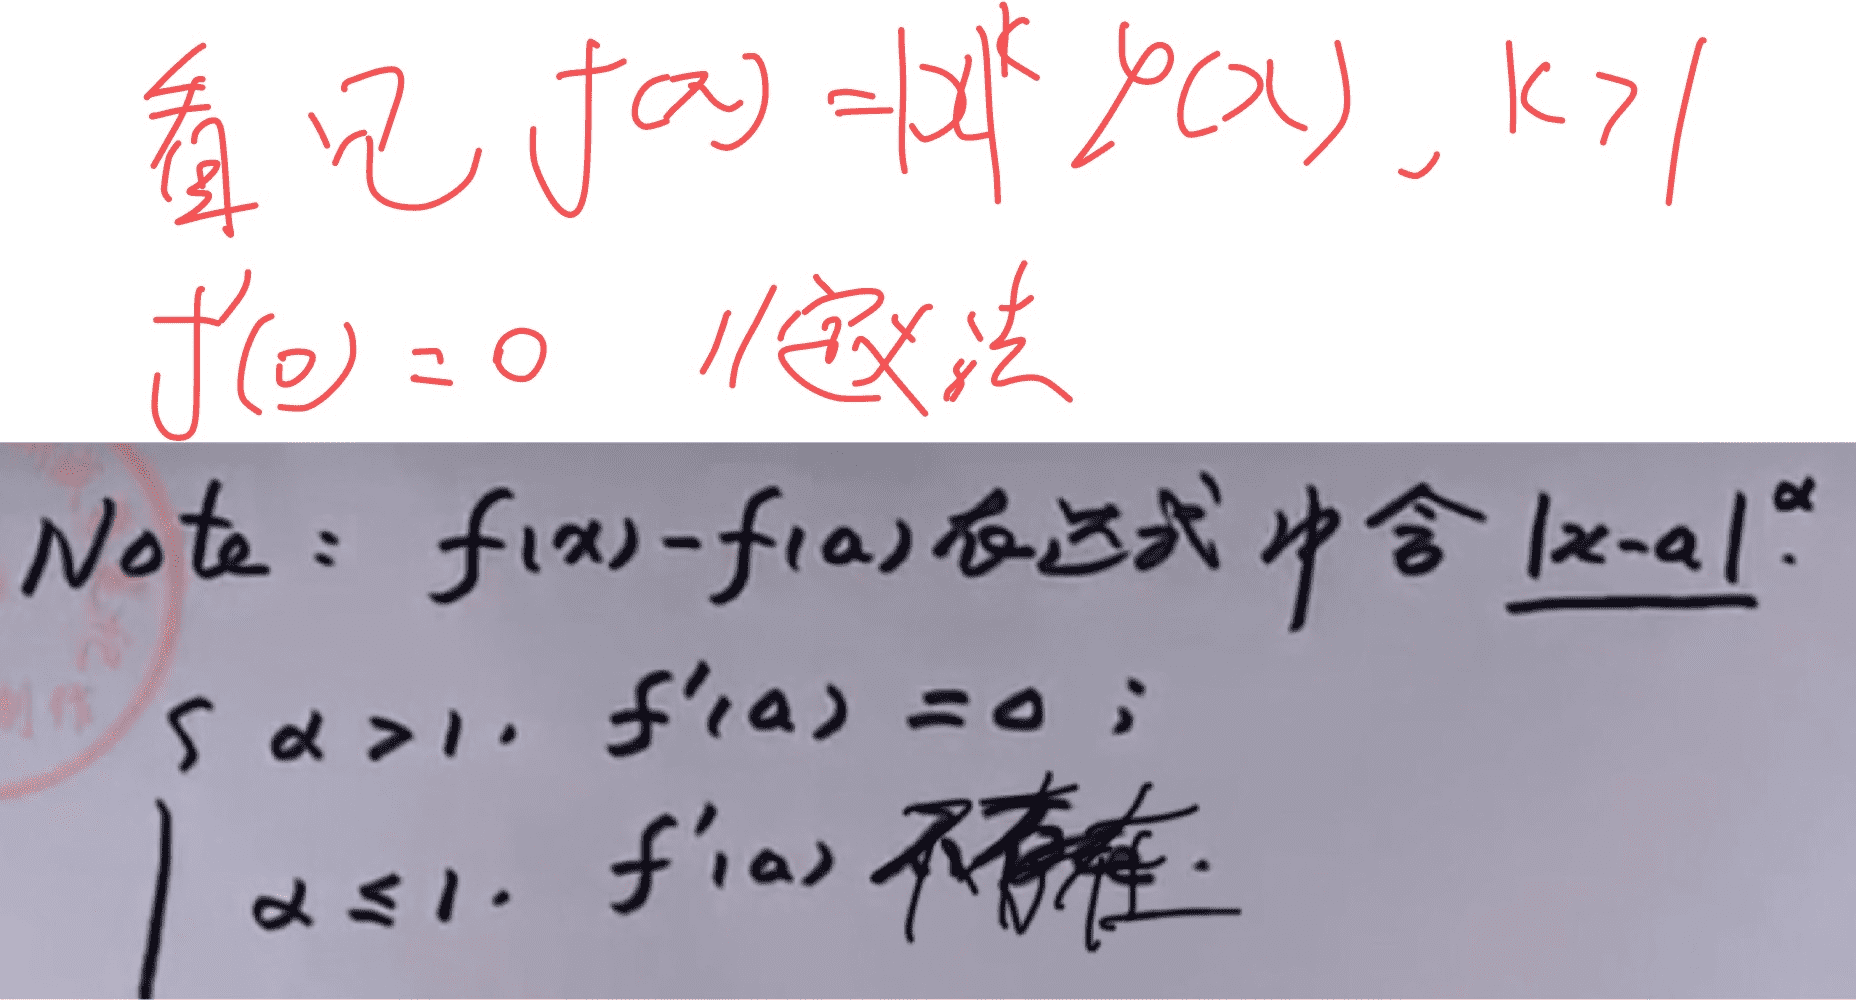 看见 f(x)=|x|^k φ(x), k>1
f'(0)=0 //定义法
Note: f(x)-f(a)表达式中含|x-a|^α.
{ α>1. f'(a)=0;
α≤1. f'(a)不存在.